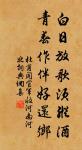 白日放歌須縱酒
青春作伴好還鄉
杜甫聞官軍收河南河
北詩典網集